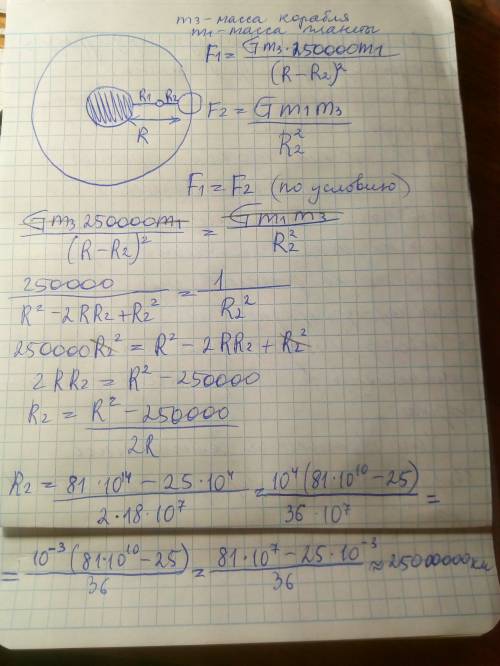 m₃ - масса корабля
m₁ - масса планеты
F₁ = Gm₃·250000m₁ / (R-R₂)²
R₁ R₂
R
F₂ = Gm₁m₃ / R₂²
F₁ = F₂ (по условию)
Gm₃250000m₁ / (R-R₂)² = Gm₁m₃ / R₂²
250000 / R²-2RR₂+R₂² = 1 / R₂²
250000R₂² = R² - 2RR₂ + R₂²
2RR₂ = R² - 250000
R₂ = R² - 250000 / 2R
R₂ = 81·10¹⁴ - 25·10⁴ / 2·18·10⁷ = 10⁴(81·10¹⁰-25) / 36·10⁷ =
= 10⁻³(81·10¹⁰-25) / 36 = 81·10⁷-25·10⁻³ / 36 ≈ 25000000км